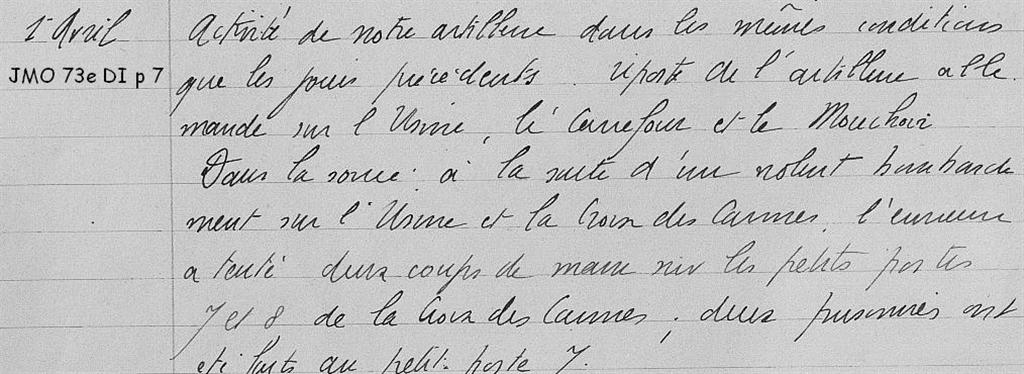 1er Avril
JMO 73e DI p 7
Activité de notre artillerie dans les mêmes conditions
que les jours précédents. riposte de l'artillerie alle
mande sur l'Usine, le Carrefour et le Mouchoir
Dans la soirée à la suite d'un violent bombarde
ment sur l'Usine et la Croix des Carmes, l'ennemi
a tenté deux coups de main sur les petits postes
7 et 8 de la Croix des Carmes ; deux prisonniers ont
été faits au petit poste 7.